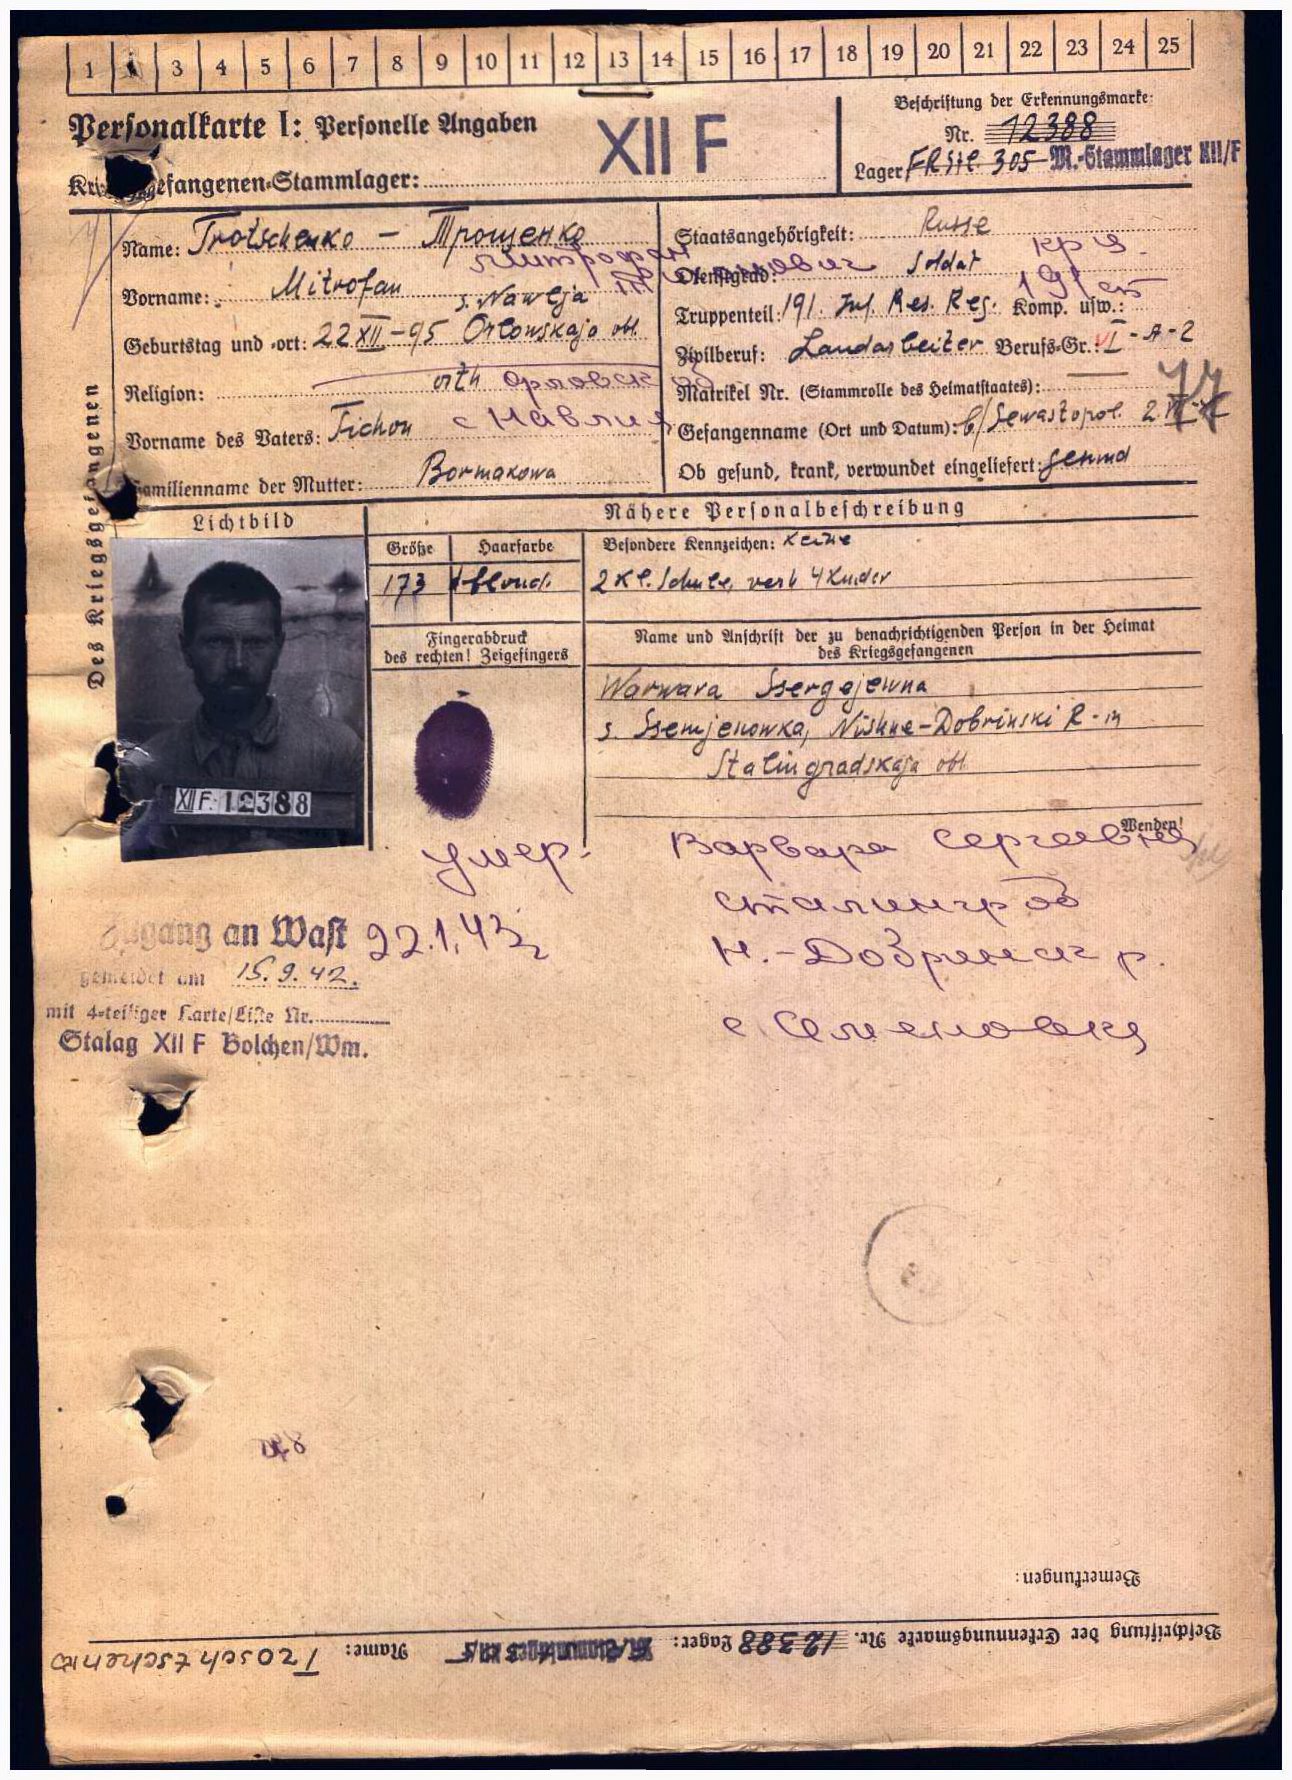 1 3 4 5 6 7 8 9 10 11 12 13 14 15 16 17 18 19 20 21 22 23 24 25
Personalkarte I: Personelle Angaben
XII F
Beschriftung der Erkennungsmarke:
Nr. 12388
Kriegsgefangenen-Stammlager:
Lager: FRStl. 305 M.-Stammlager XII/F
Des Kriegsgefangenen
Name: Trotschenko – Трощенко
Митрофан
Vorname: Mitrofan
s. Nawlja
Geburtstag und -ort: 22 XII -95 Orlowskaja obl.
Religion: orth Орловск
Vorname des Vaters: Tichon с Навлия
Familienname der Mutter: Bormakowa
Staatsangehörigkeit: Russe
кр-ц
Dienstgrad: Soldat
191
Truppenteil: 191. Inf. Res. Reg. Komp. usw.:
Zivilberuf: Landarbeiter Berufs-Gr.: VI - A - 2
Matrikel Nr. (Stammrolle des Heimatstaates):
Gefangenname (Ort und Datum): b/Sewastopol 2.
Ob gesund, krank, verwundet eingeliefert: gesund
Lichtbild
Nähere Personalbeschreibung
Größe Haarfarbe
Besondere Kennzeichen: keine
173 blond.
2 Kl. Schule, verh 4 Kinder
Fingerabdruck
des rechten! Zeigefingers
Name und Anschrift der zu benachrichtigenden Person in der Heimat
des Kriegsgefangenen
Warwara Ssergejewna
s. Ssemjenowka, Nishne-Dobrinski R-n
Stalingradskaja obl
XII F: 12388
Wenden!
умер. Варвара Сергеевна
22.1.43г
Сталинград
Н.-Добринск р.
с Семеновка
Zugang an Wast
gemeldet am 15.9.42.
mit 4-teiliger Karte/Liste Nr.
Stalag XII F Bolchen/Wm.
Bemerkungen:
Beschriftung der Erkennungsmarke Nr. 12388 Lager: Name: Troschtschenko